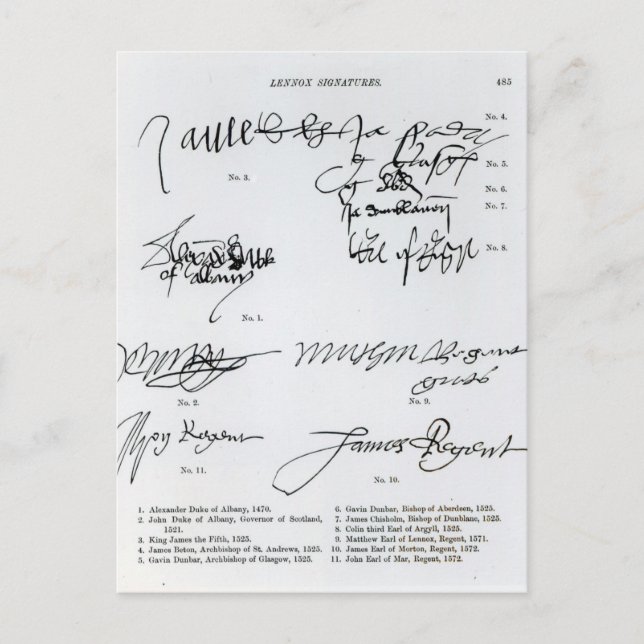 LENNOX SIGNATURES. 485
No. 4.
No. 5.
No. 3.
No. 6.
No. 7.
No. 8.
of albany
No. 1.
No. 2.
No. 9.
Regent
James Regent
No. 11.
No. 10.
1. Alexander Duke of Albany, 1470.
2. John Duke of Albany, Governor of Scotland,
1521.
3. King James the Fifth, 1525.
4. James Beton, Archbishop of St. Andrews, 1525.
5. Gavin Dunbar, Archbishop of Glasgow, 1525.
6. Gavin Dunbar, Bishop of Aberdeen, 1525.
7. James Chisholm, Bishop of Dunblane, 1525.
8. Colin third Earl of Argyll, 1525.
9. Matthew Earl of Lennox, Regent, 1571.
10. James Earl of Morton, Regent, 1572.
11. John Earl of Mar, Regent, 1572.